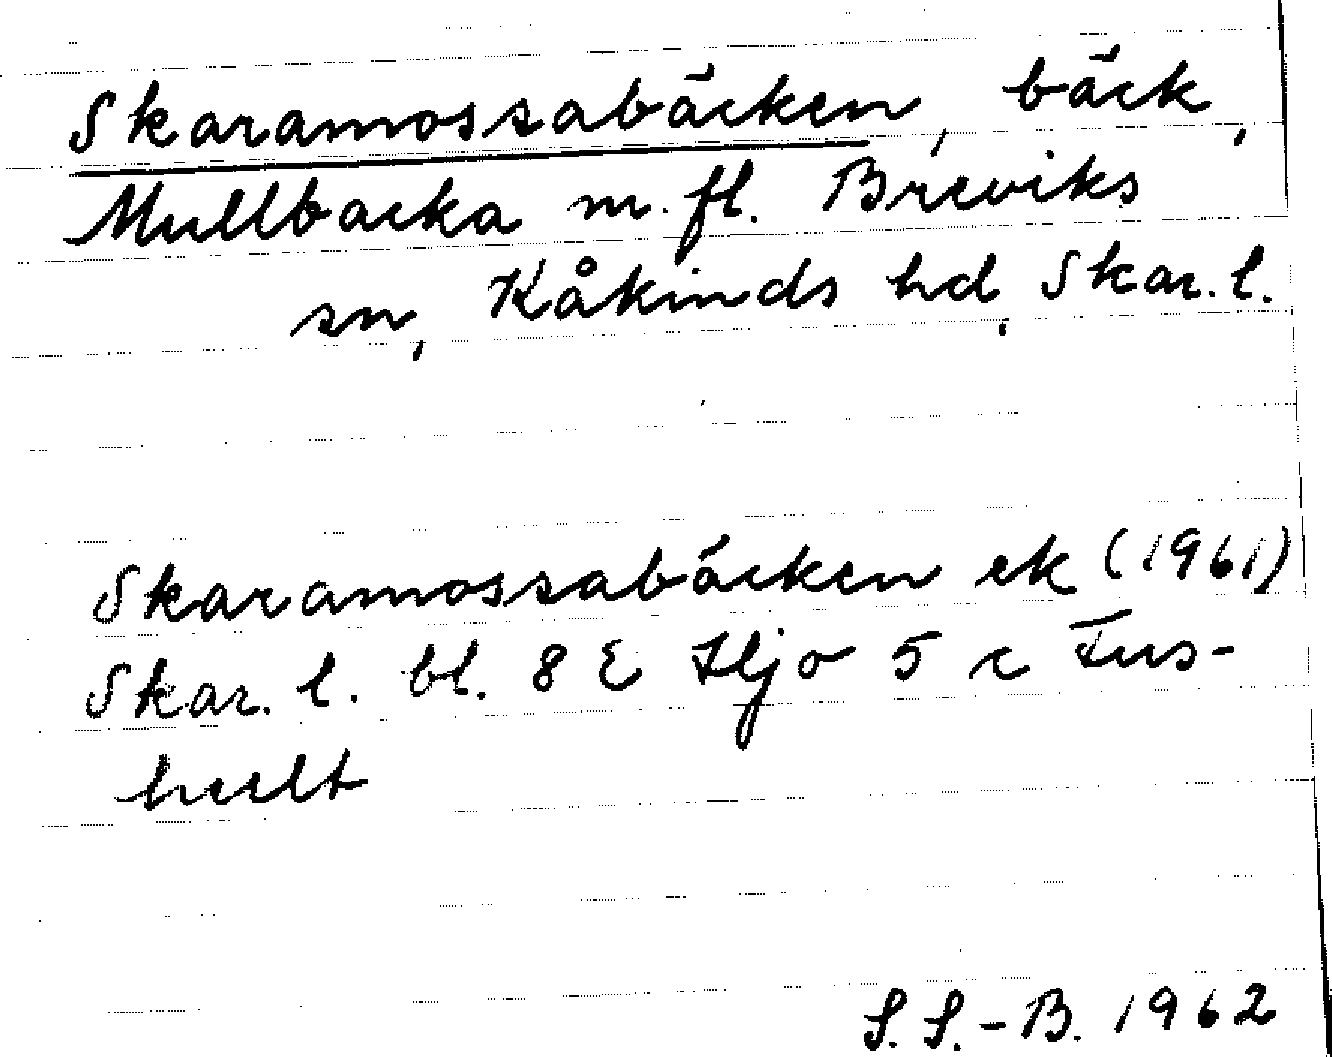 Skaramossabäcken, bäck,
Mullbacka m.fl. Breviks
sn, Kåkinds hd, Skar. l.
Skaramossabäcken ek (1961)
Skar. l. bl. 8 E Hjo 5 c Fus-
hult
S. S.-B. 1962